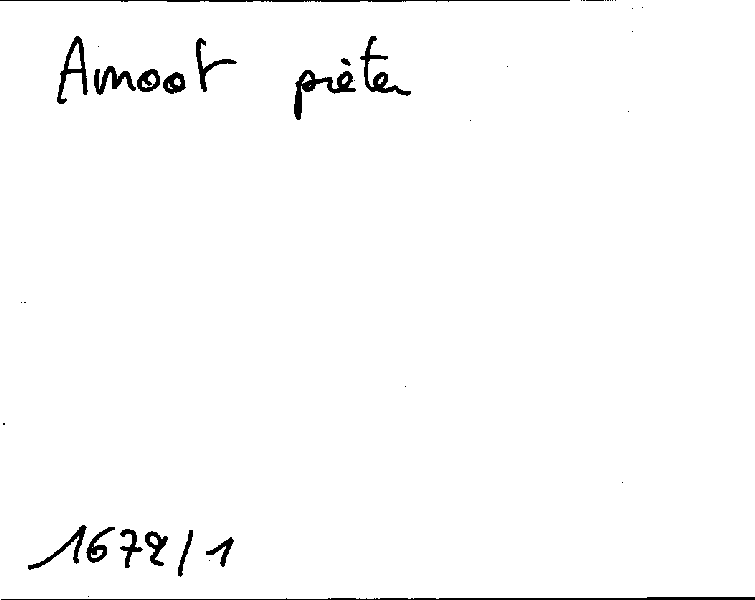 Amoot pièter
1672/1